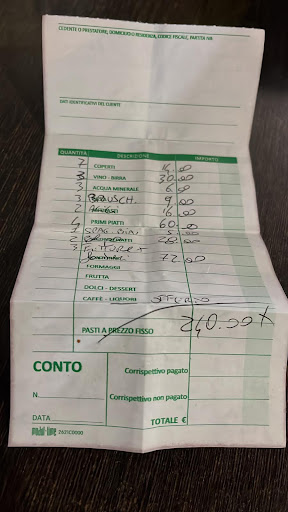 CEDENTE O PRESTATORE, DOMICILIO O RESIDENZA, CODICE FISCALE, PARTITA IVA
DATI IDENTIFICATIVI DEL CLIENTE
QUANTITÀ DESCRIZIONE IMPORTO
7 COPERTI 14.00
3 VINO - BIRRA 30.00
3 ACQUA MINERALE 6.00
3 BRUSCH. 9.00
2 16.00
4 PRIMI PIATTI 60.00
1
2 28.00
3 72.00
FORMAGGI
FRUTTA
DOLCI - DESSERT
CAFFÈ - LIQUORI
PASTI A PREZZO FISSO 240.00
CONTO
Corrispettivo pagato
N.
Corrispettivo non pagato
DATA
TOTALE €
2621CD000